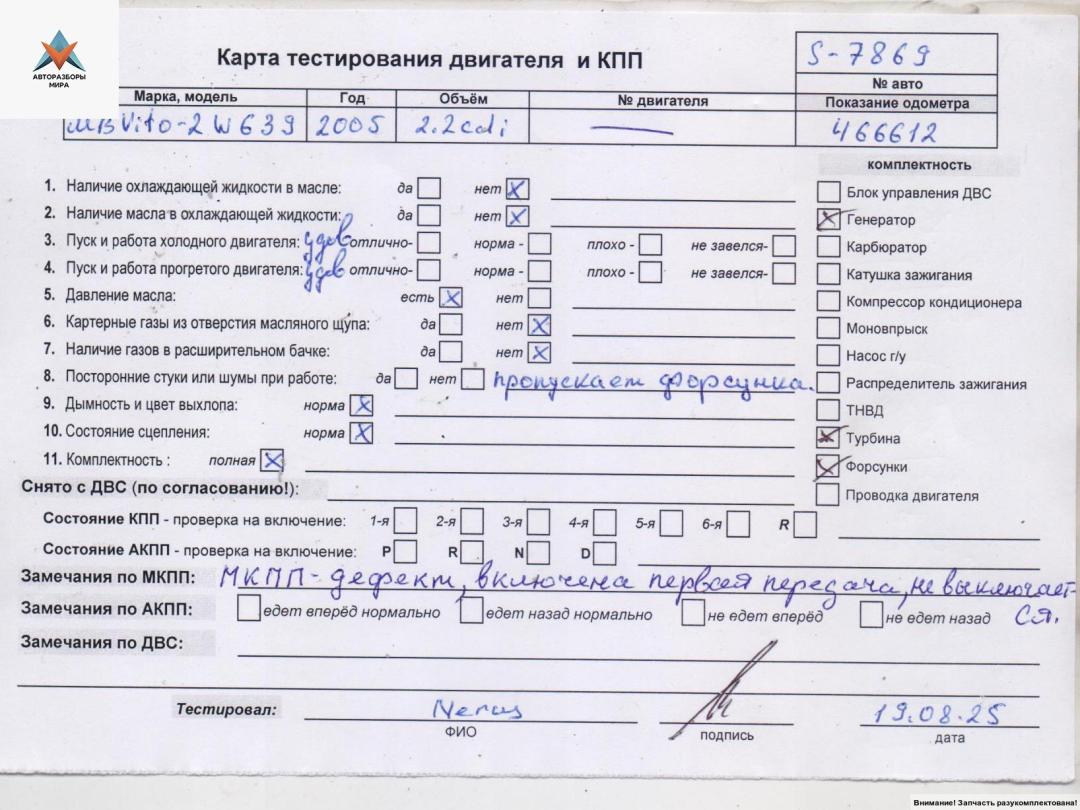 АВТОРАЗБОРЫ
МИРА
Карта тестирования двигателя и КПП
S-7869
№ авто
Марка, модель Год Объём № двигателя Показание одометра
MB Vito-2 W639 2005 2.2cdi — 466612
комплектность
1. Наличие охлаждающей жидкости в масле: да нет X
Блок управления ДВС
2. Наличие масла в охлаждающей жидкости: да нет X
X Генератор
3. Пуск и работа холодного двигателя: удов отлично- норма - плохо - не завелся-
Карбюратор
4. Пуск и работа прогретого двигателя: удов отлично- норма - плохо - не завелся-
Катушка зажигания
5. Давление масла: есть X нет
Компрессор кондиционера
6. Картерные газы из отверстия масляного щупа: да нет X
Моновпрыск
7. Наличие газов в расширительном бачке: да нет X
Насос г/у
8. Посторонние стуки или шумы при работе: да нет пропускает форсунка.
Распределитель зажигания
9. Дымность и цвет выхлопа: норма X
ТНВД
10. Состояние сцепления: норма X
X Турбина
11. Комплектность : полная X
X Форсунки
Снято с ДВС (по согласованию!):
Проводка двигателя
Состояние КПП - проверка на включение: 1-я 2-я 3-я 4-я 5-я 6-я R
Состояние АКПП - проверка на включение: P R N D
Замечания по МКПП: МКПП - дефект, включена первая передача, не выключает-
ся.
Замечания по АКПП: едет вперёд нормально едет назад нормально не едет вперёд не едет назад
Замечания по ДВС:
Тестировал: 19.08.25
ФИО подпись дата
Внимание! Запчасть разукомплектована!